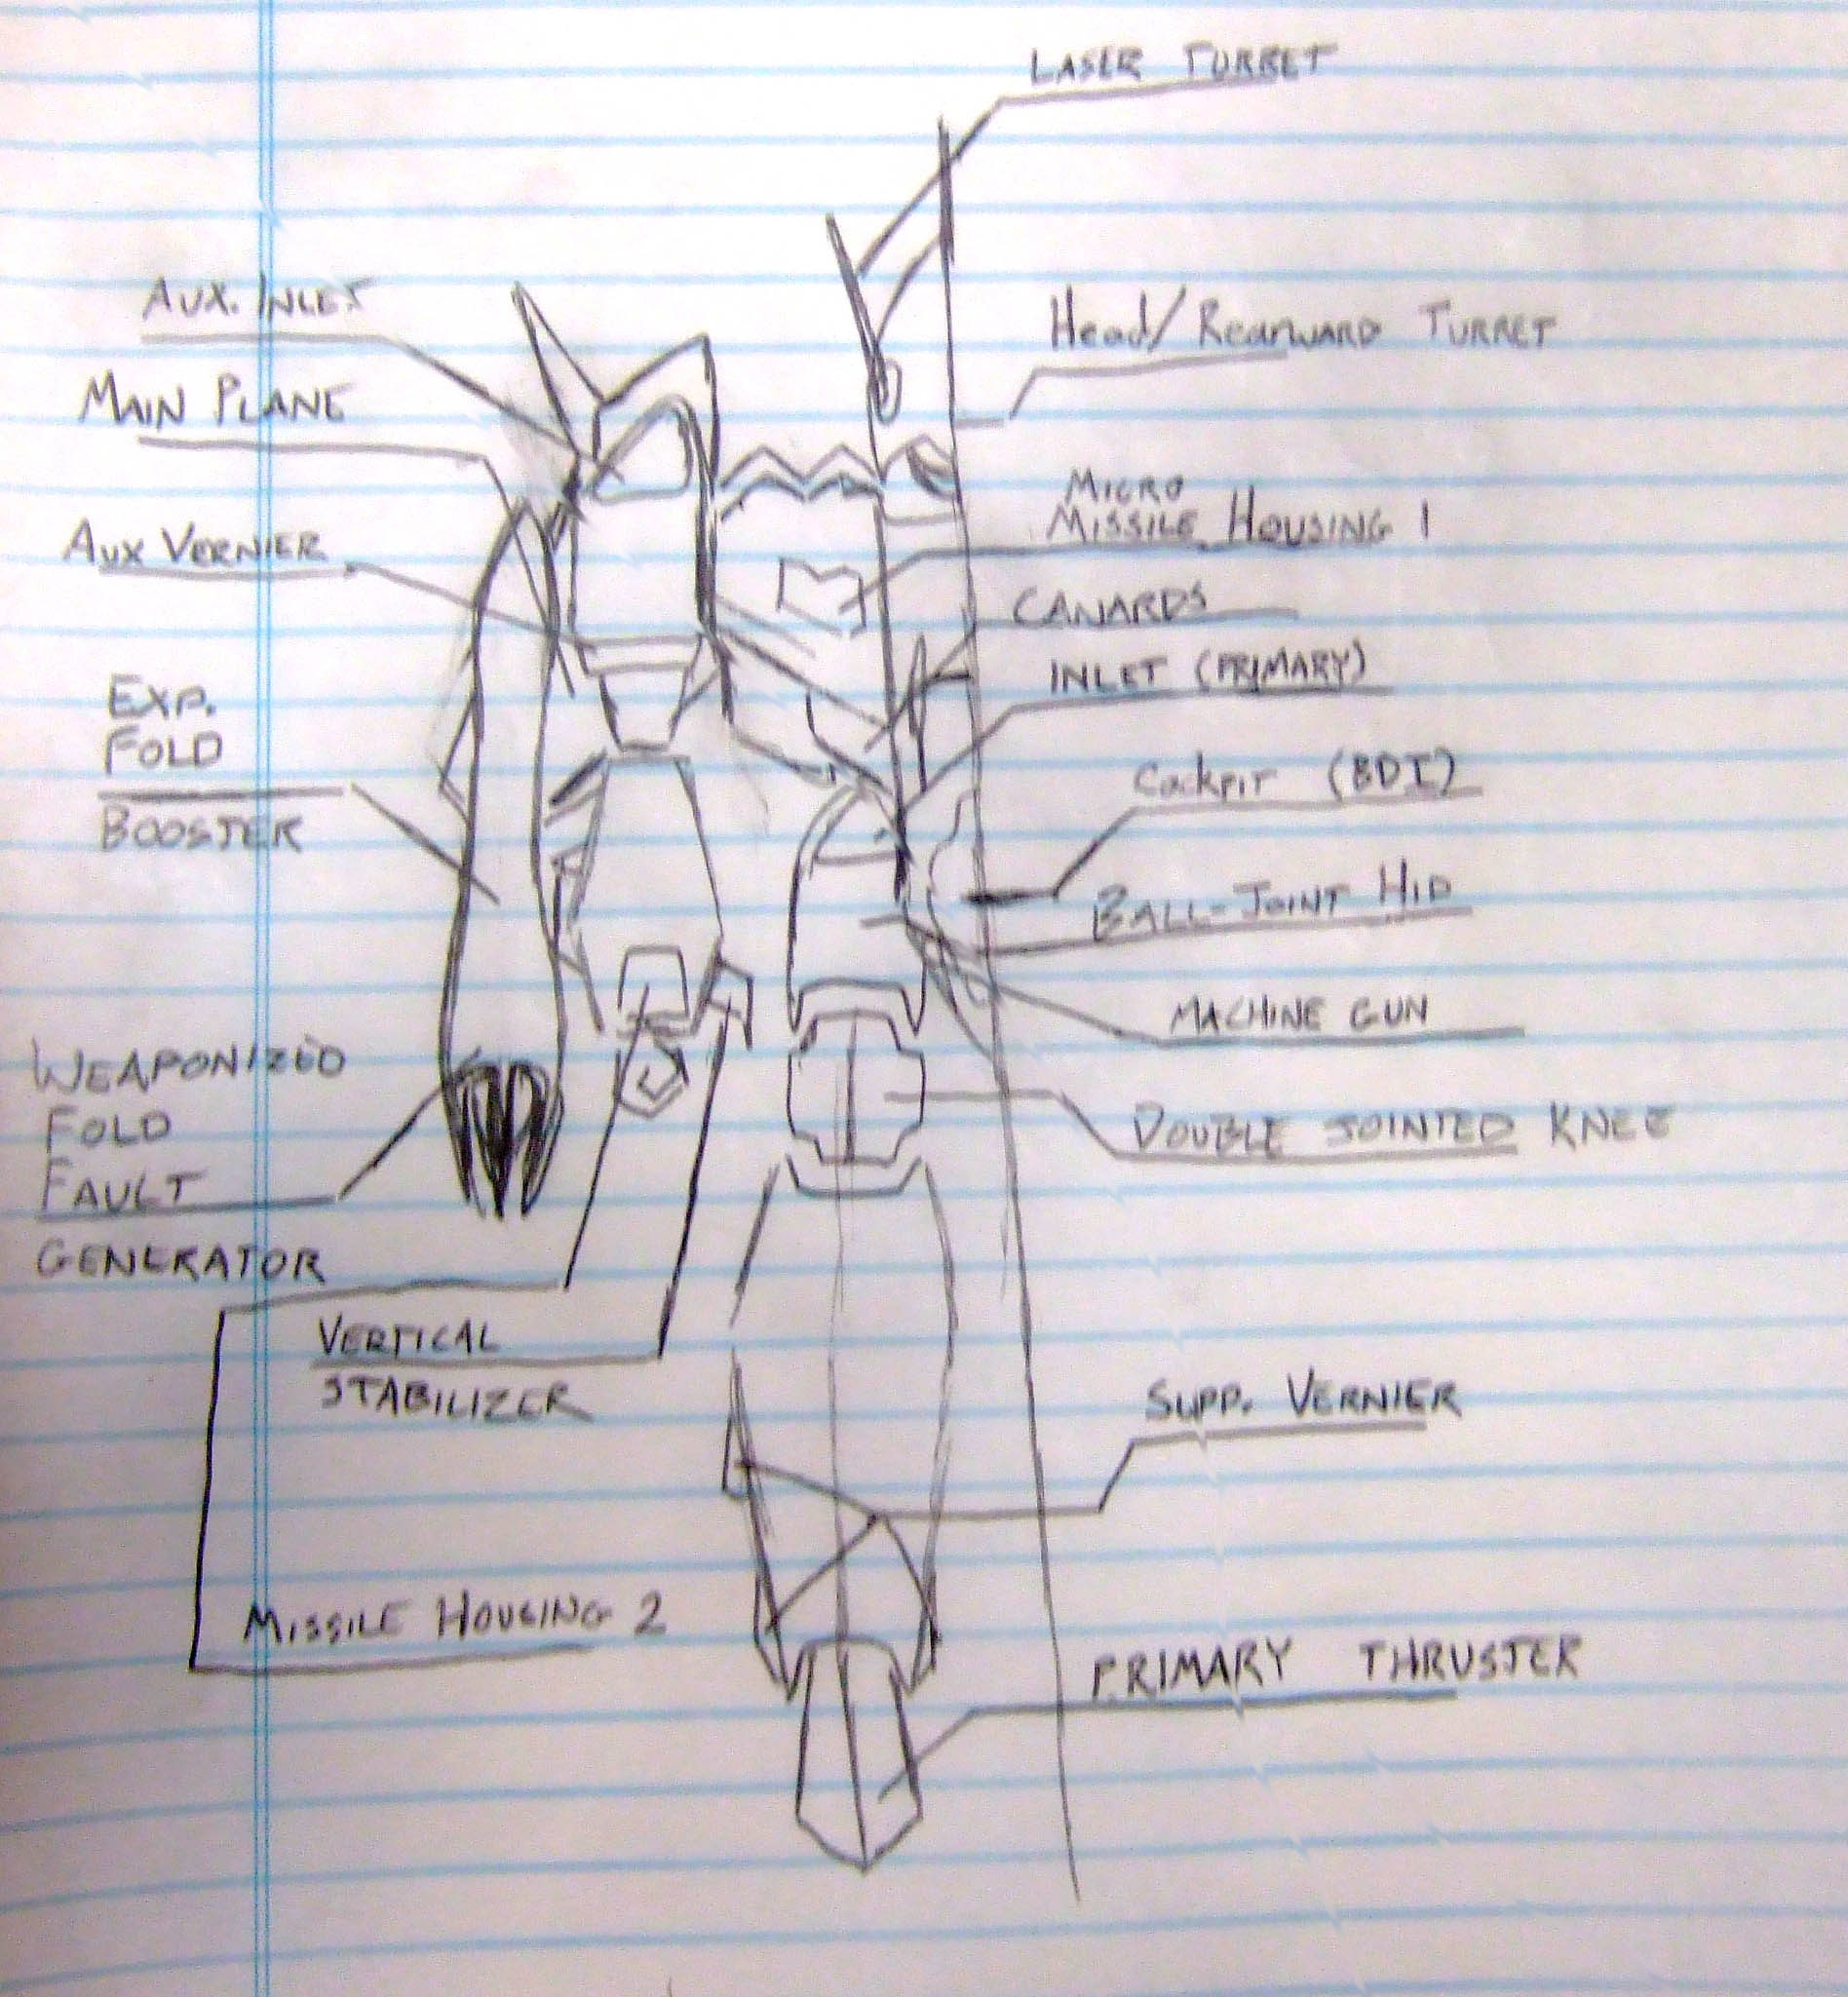 LASER TURRET
AUX. INLET
Head/Rearward TURRET
MAIN PLANE
MICRO
MISSILE HOUSING 1
AUX VERNIER
CANARDS
INLET (PRIMARY)
EXP.
FOLD
BOOSTER
Cockpit (BDI)
BALL-JOINT HIP
MACHINE GUN
WEAPONIZED
FOLD
FAULT
GENERATOR
DOUBLE JOINTED KNEE
VERTICAL
STABILIZER
SUPP. VERNIER
MISSILE HOUSING 2
PRIMARY THRUSTER